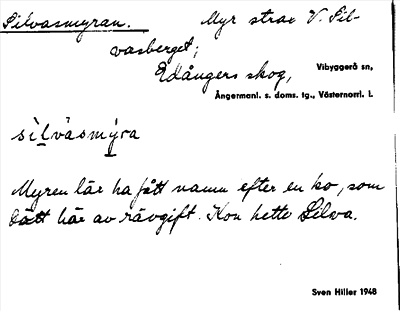 Silvasmyran. Myr strax V. Sil-
vasberget;
Edångers skog, Vibyggerå sn,
Ångermanl. s. doms. tg., Västernorrl. l.
sìlvásmýra
Myren lär ha fått namn efter en ko, som
dött här av rävgift. Kon hette Silva.
Sven Hiller 1948